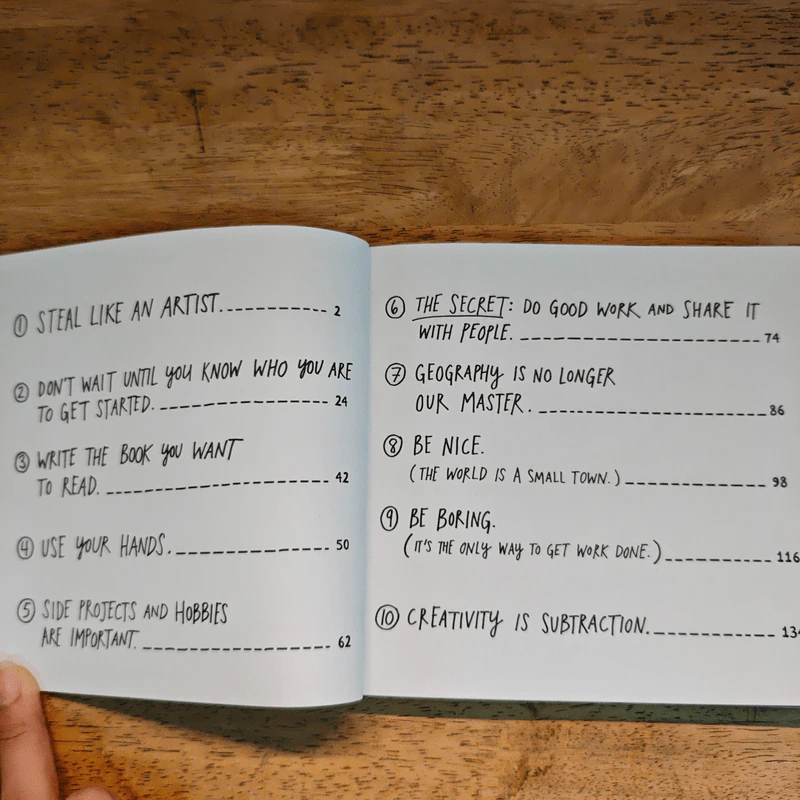 ① STEAL LIKE AN ARTIST. 2
② DON'T WAIT UNTIL YOU KNOW WHO YOU ARE
TO GET STARTED. 24
③ WRITE THE BOOK YOU WANT
TO READ. 42
④ USE YOUR HANDS. 50
⑤ SIDE PROJECTS AND HOBBIES
ARE IMPORTANT. 62
⑥ THE SECRET: DO GOOD WORK AND SHARE IT
WITH PEOPLE. 74
⑦ GEOGRAPHY IS NO LONGER
OUR MASTER. 86
⑧ BE NICE.
(THE WORLD IS A SMALL TOWN.) 98
⑨ BE BORING.
(IT'S THE ONLY WAY TO GET WORK DONE.) 116
⑩ CREATIVITY IS SUBTRACTION. 134